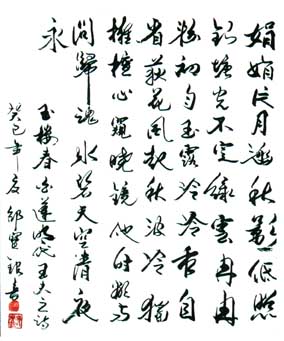 娟娟片月涵秋影低照
銀塘光不定綠雲冉冉
粉初匀玉露泠泠香自
省荻花風起秋波冷獨
擁檀心窺曉鏡他時欲與
問歸魂水碧天空清夜
永
玉樓春白蓮明代王夫之詩
癸巳年夏鄒書